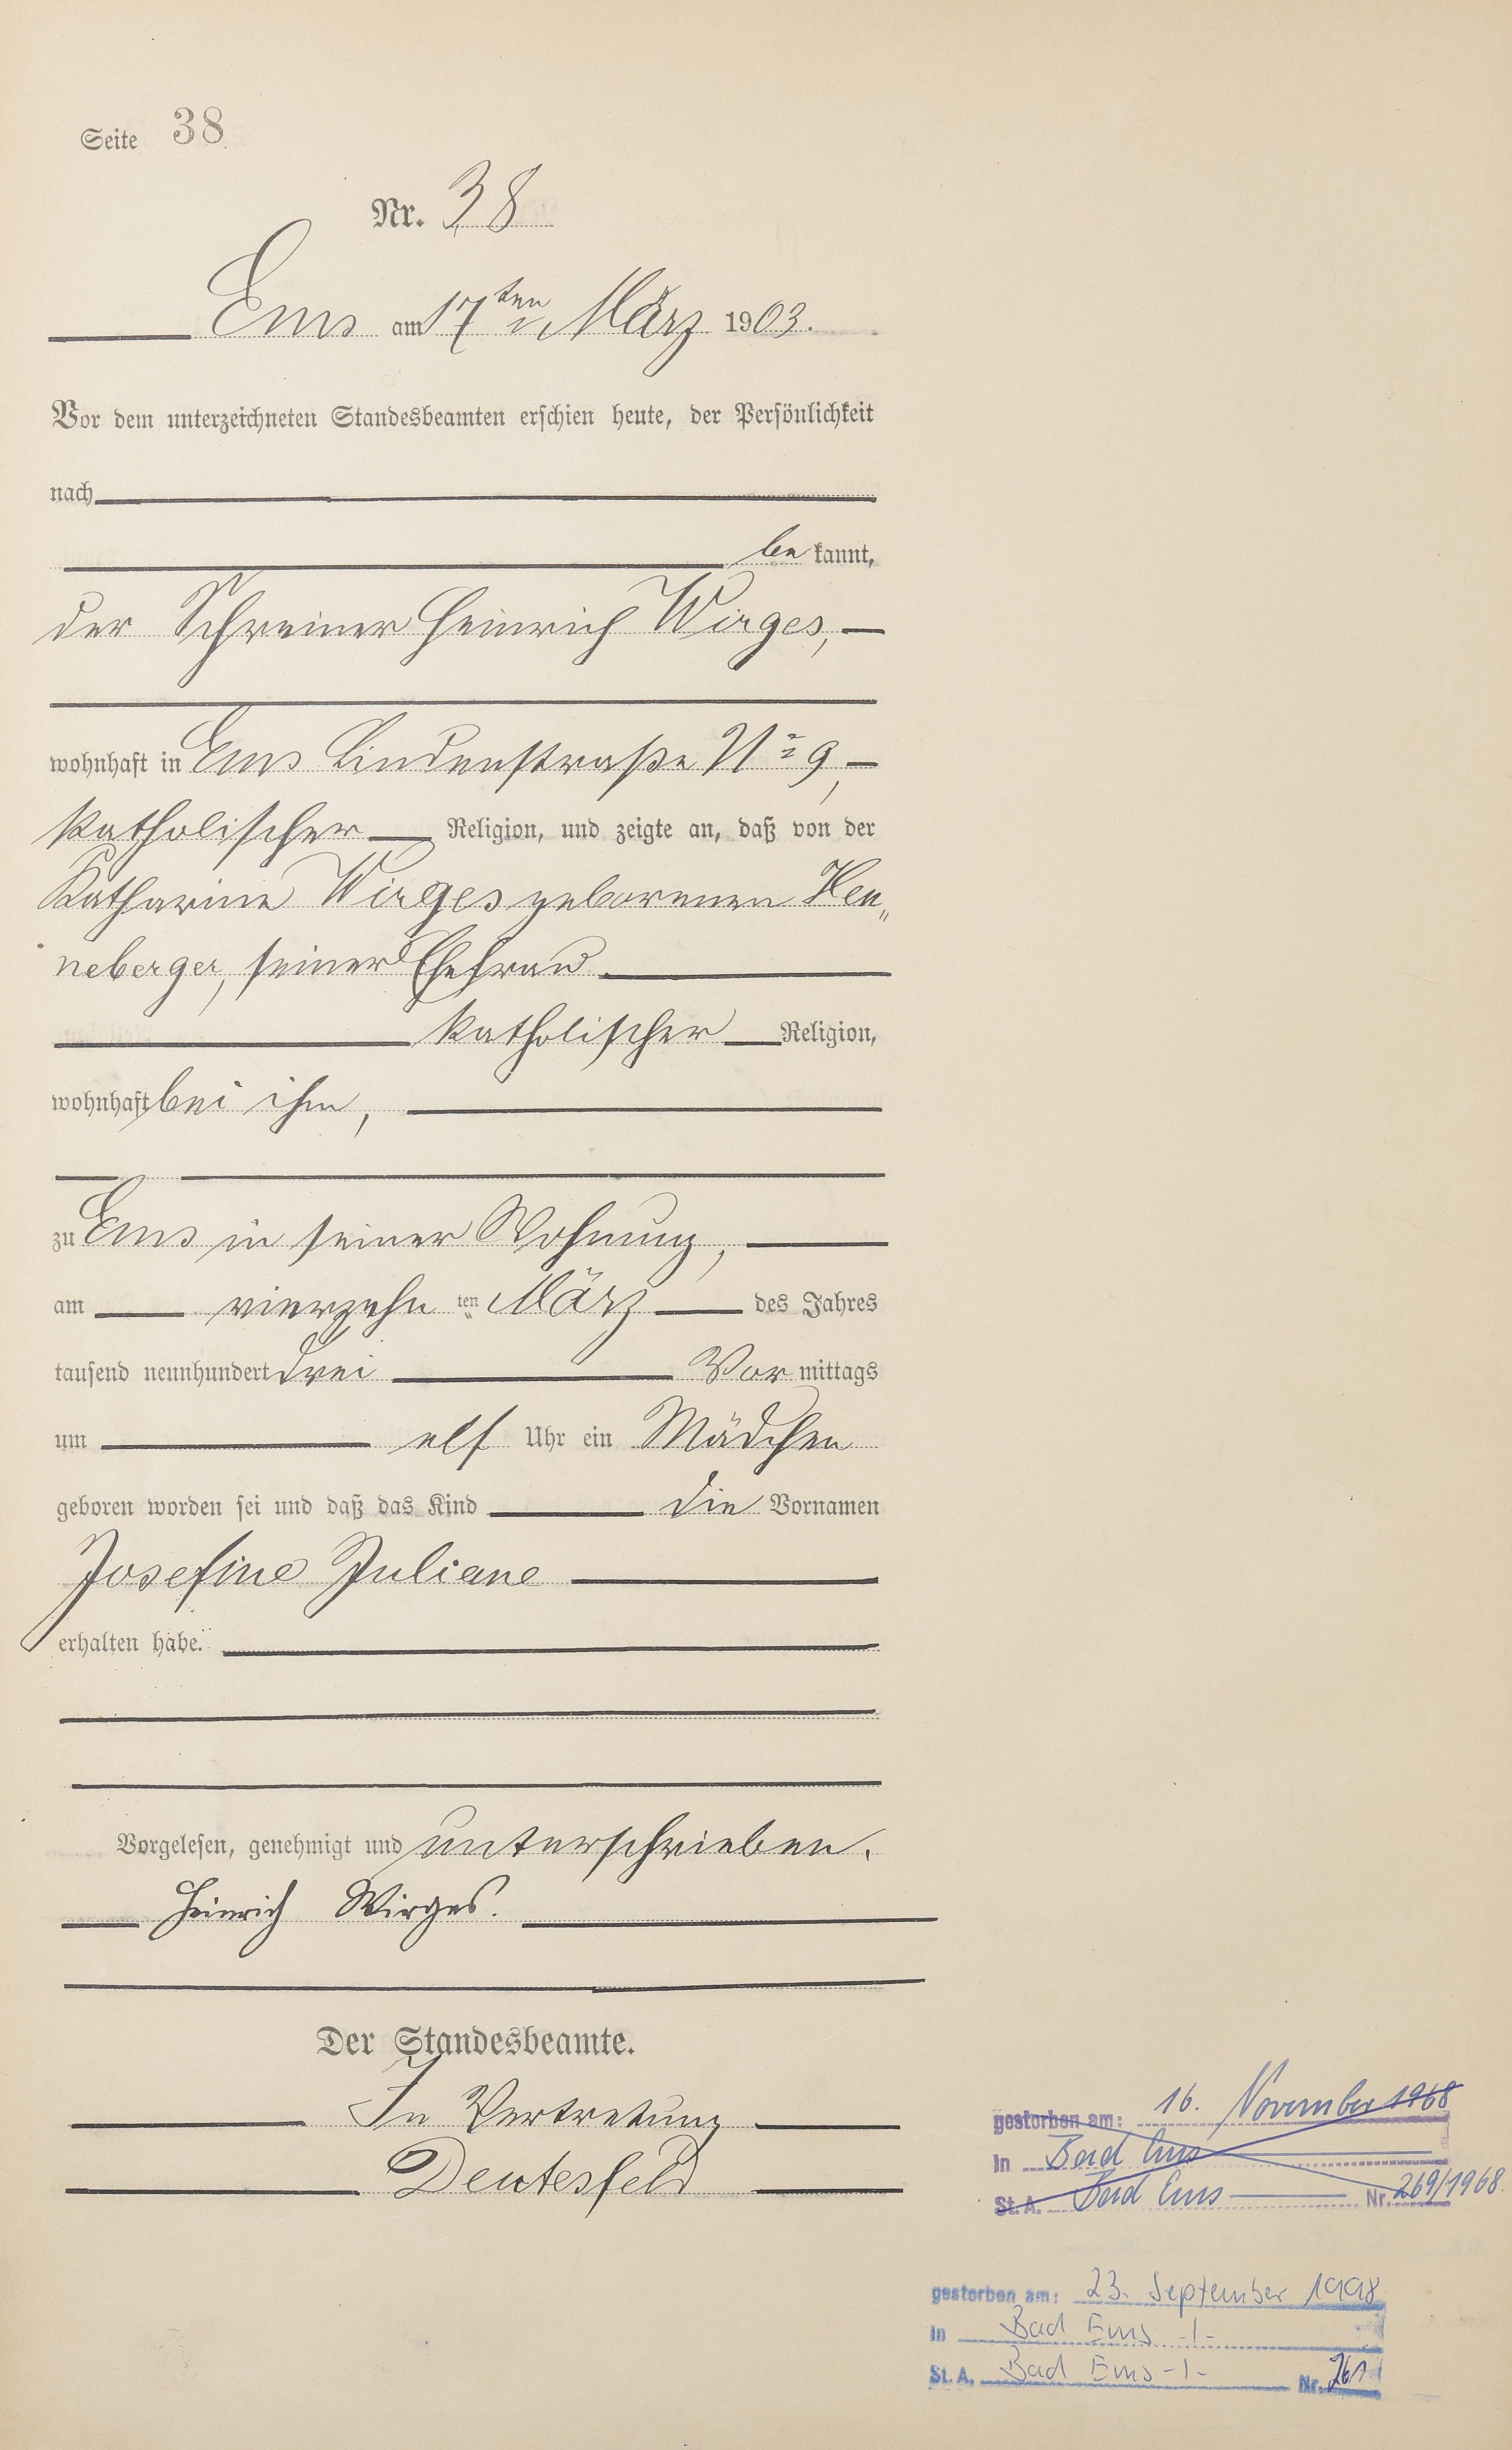 Seite 38
Nr. 38
Ems am 17ten März 1903.
Vor dem unterzeichneten Standesbeamten erschien heute, der Persönlichkeit
nach
be kannt,
der Schreiner Heinrich Wirges,
wohnhaft in Ems Lindenstraße No 9,
katholischer Religion, und zeigte an, daß von der
Katharina Wirges geborenen Hen„
neberger, seiner Ehefrau
katholischer Religion,
wohnhaft bei ihm,
zu Ems in seiner Wohnung,
am vierzehn ten März des Jahres
tausend neunhundert drei Vor mittags
um elf Uhr ein Mädchen
geboren worden sei und daß das Kind die Vornamen
Josefine Juliane
erhalten habe.
Vorgelesen, genehmigt und unterschrieben.
Heinrich Wirges.
Der Standesbeamte.
In Vertretung
Deutesfeld
gestorben am: 16. November 1968
in Bad Ems
St. A. Bad Ems Nr. 269/1968
gestorben am: 23. September 1998
in Bad Ems -1-
St. A. Bad Ems -1- Nr. 261